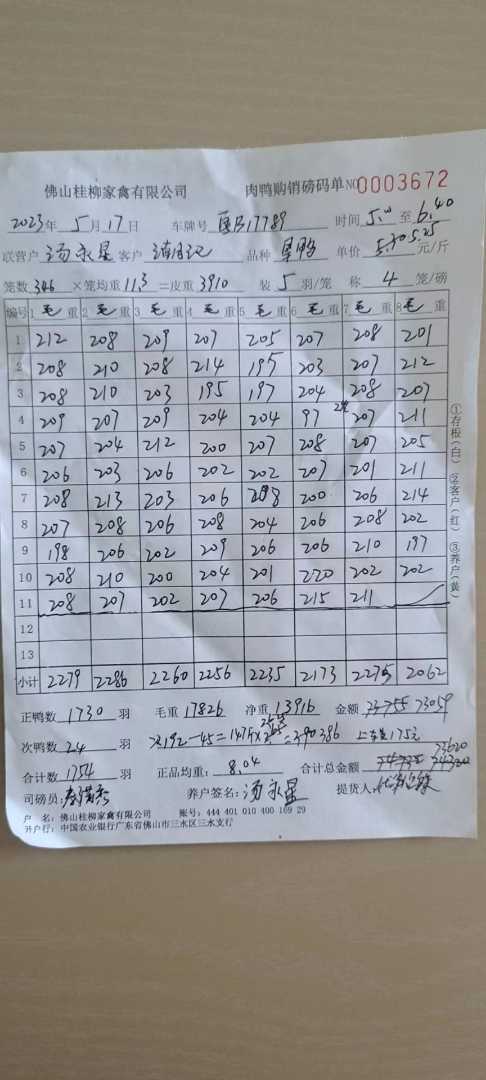 佛山桂柳家禽有限公司 肉鸭购销磅码单 NO 0003672
2023年 5月17日 车牌号 17789 时间 5.0 至 6.40
联营户 汤永星 客户 品种 单价 5.25 元/斤
笼数 346 ×笼均重 11.3 =皮重 3910 装 5 羽/笼 称 4 笼/磅
编号 1 毛 重 2 毛 重 3 毛 重 4 毛 重 5 毛 重 6 毛 重 7 毛 重 8 毛 重
1 212 208 209 207 205 207 208 201
2 208 210 208 214 195 203 207 212
3 208 210 203 195 197 204 208 207
4 209 207 209 204 204 97 207 211
5 207 204 212 200 207 208 207 205
6 206 203 206 202 202 207 201 211
7 208 213 203 206 208 200 206 214
8 207 208 206 208 204 206 208 202
9 198 206 202 209 206 206 210 197
10 208 210 200 204 201 220 202 202
11 208 207 202 207 206 215 211
12
13
小计 2279 2286 2260 2256 2235 2173 2275 2062
正鸭数 1730 羽 毛重 17826 净重 13916 金额 73755 73059
次鸭数 24 羽 192-45=147斤× 386 上车费175元
73620
合计数 1754 羽 正品均重: 8.04 合计总金额
司磅员: 养户签名: 汤永星 提货人:
户 名: 佛山桂柳家禽有限公司 账号: 444 401 010 400 169 29
开户行: 中国农业银行广东省佛山市三水区三水支行
①存根(白) ②客户(红) ③养户(黄)